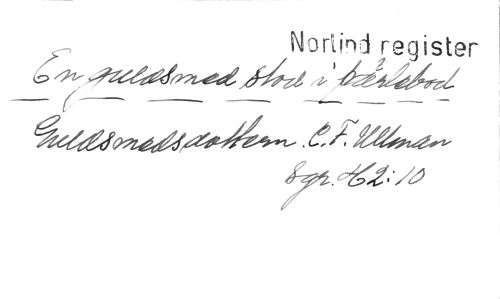 Norlind register
En guldsmed stod i pärlebod
Guldsmedsdottern. C. F. Ullman
Sgr. H2:10